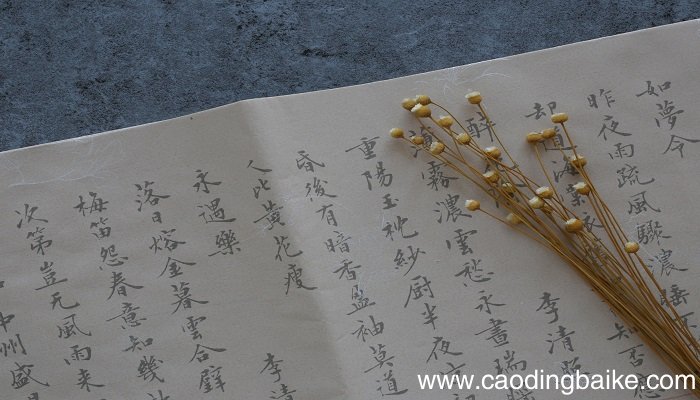 如夢令
昨夜雨疏風驟濃睡不
却道海棠依知否應
醉李清照
薄霧濃雲愁永晝瑞腦
重陽玉枕紗厨半夜
昏後有暗香盈袖莫道
人比黃花瘦
永遇樂 李清
落日熔金暮雲合璧
梅笛怨春意知幾
次第豈无風雨來
中州盛
www.caodingbaike.com